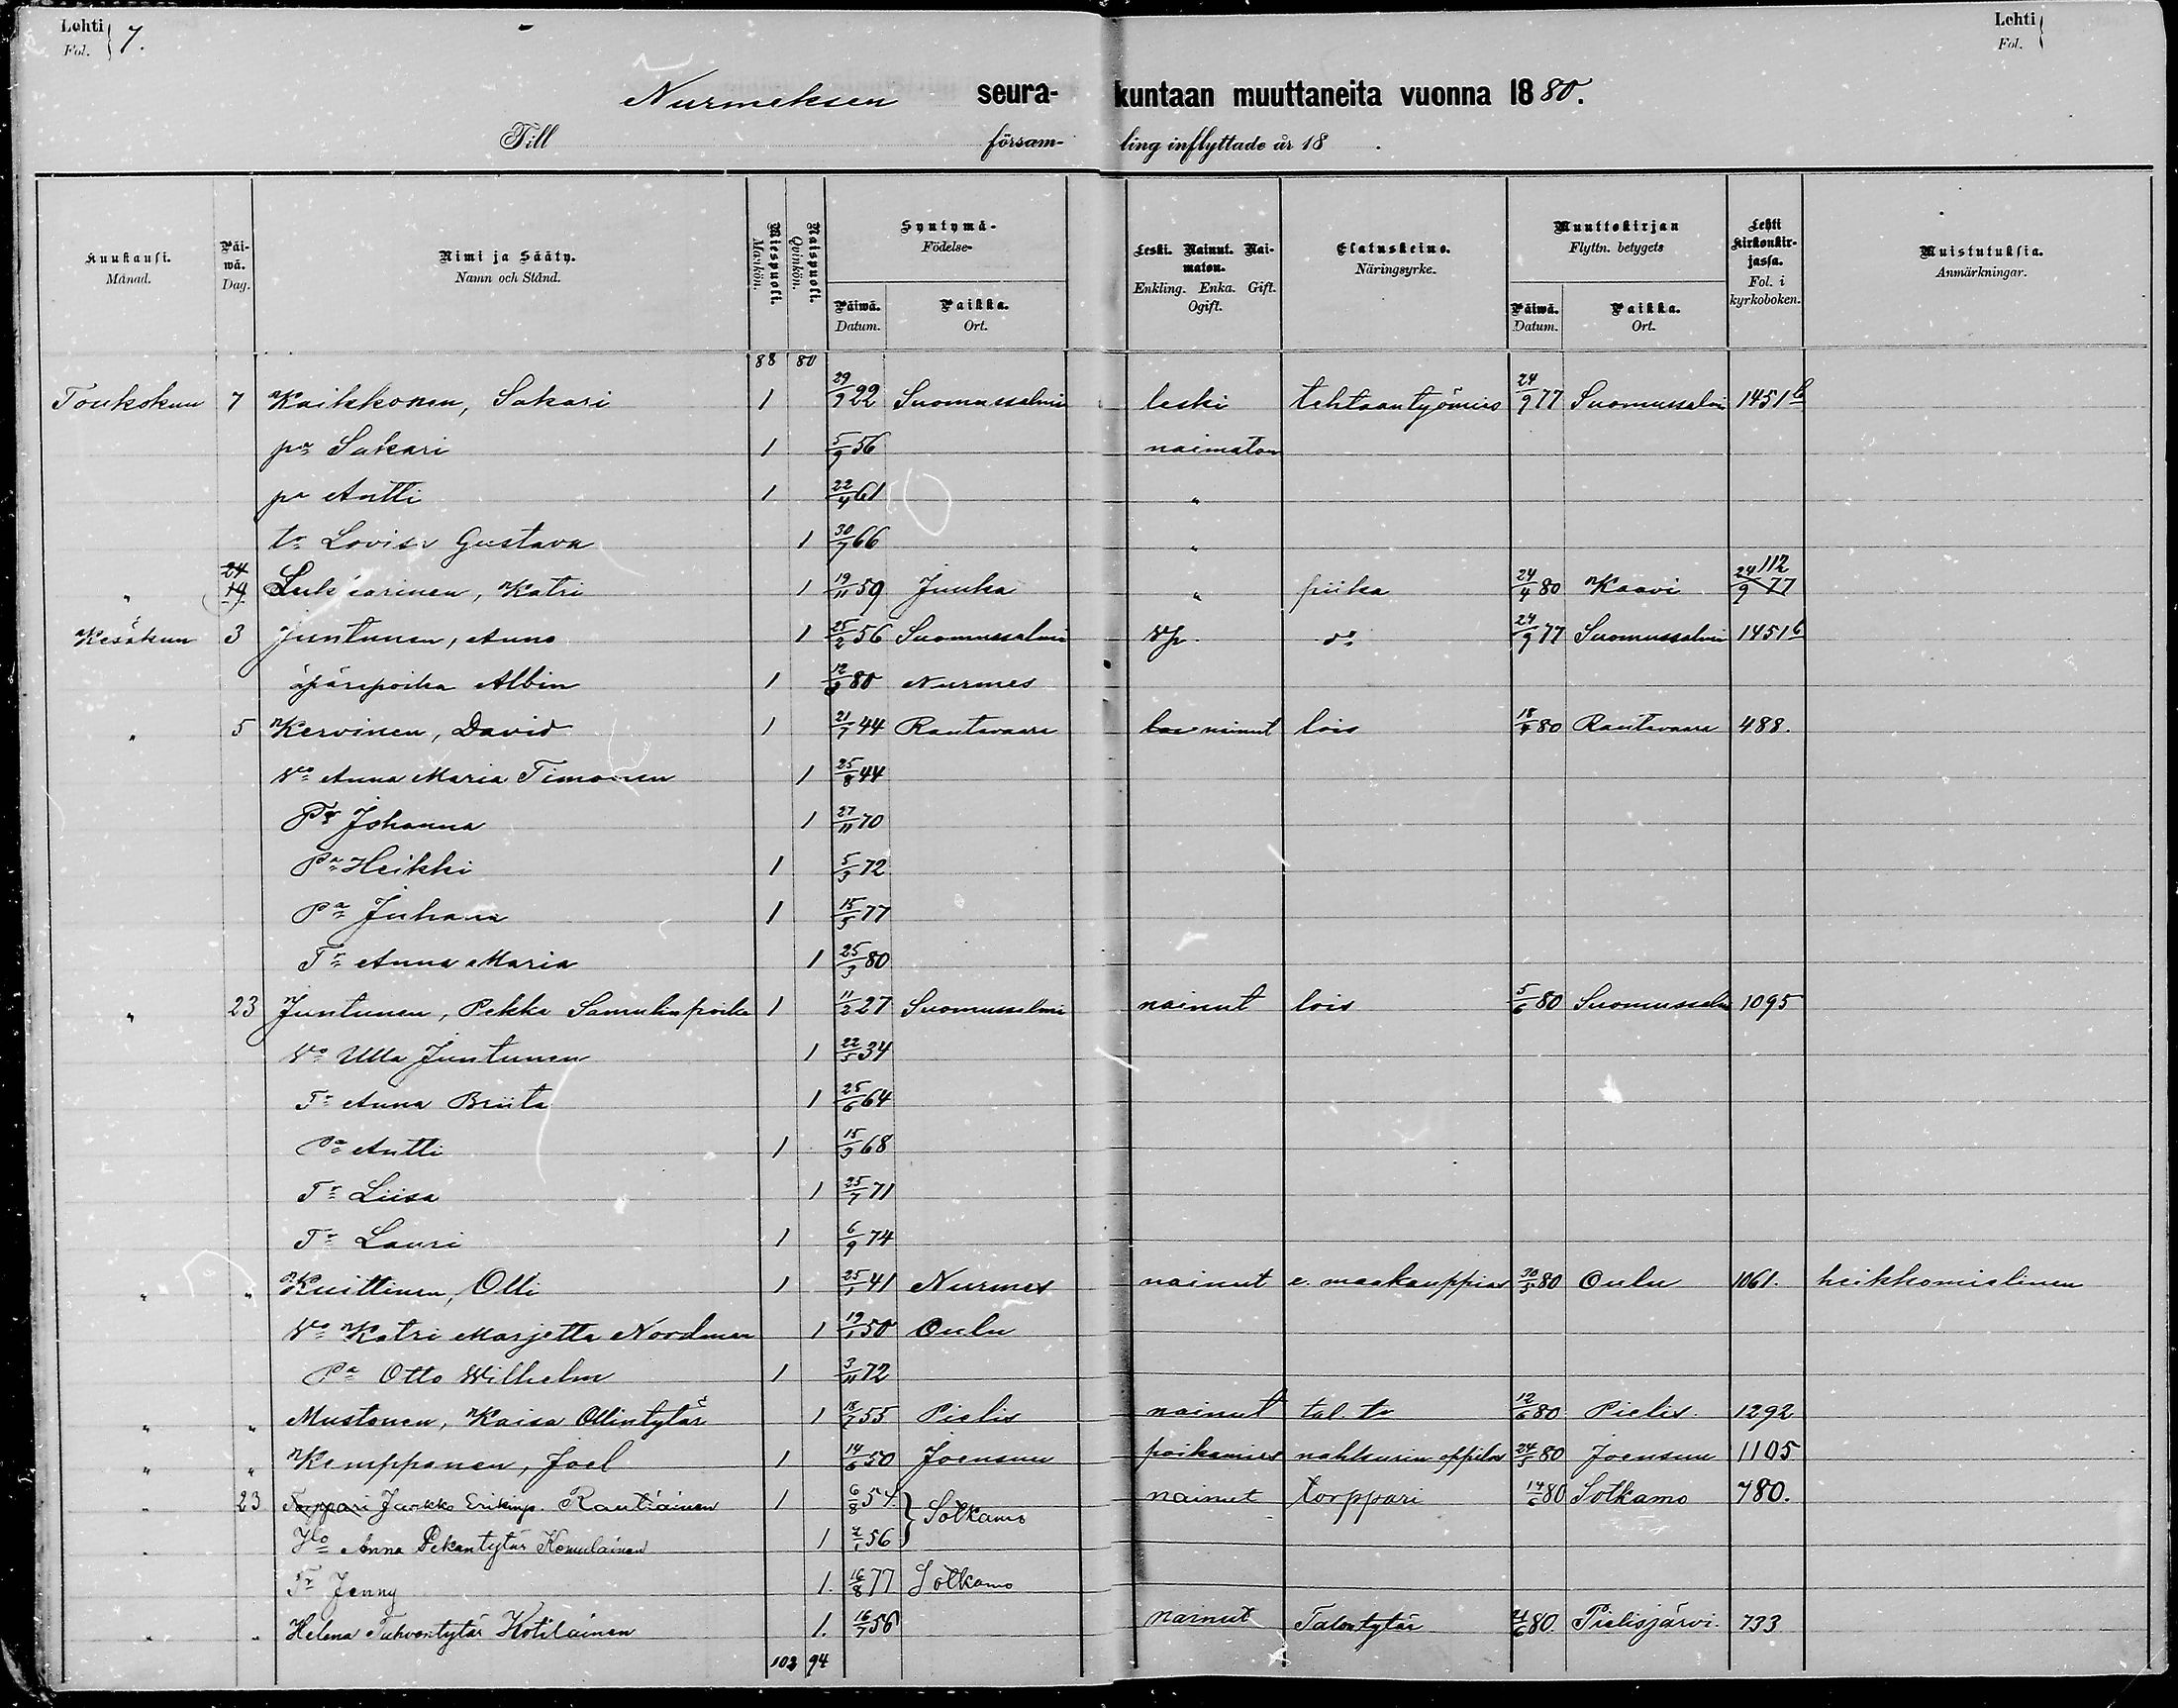 Lehti Fol. 7.
Lehti Fol.
Nurmeksen seura- kuntaan muuttaneita vuonna 1880.
Till församling inflyttade år 18 .
Kuukausi. Månad. Päiwä. Dag. Nimi ja Sääty. Namn och Stånd. Miespuoli. Mankön. Naispuoli. Qvinkön. Syntymä- Födelse- Päiwä. Datum. Paikka. Ort. Leski. Nainut. Naimaton. Enkling. Enka. Gift. Ogift. Elatuskeino. Näringsyrke. Muuttokirjan Flyttn. betygets Päiwä. Datum. Paikka. Ort. Lehti kirkonkirjassa. Fol. i kyrkoboken. Muistutuksia. Anmärkningar.
88 80
Toukokuu 7 Kaikkonen, Sakari 1 29/9 22 Suomussalmi leski tehtaantyömies 24/9 77 Suomussalmi 1451 b
pa Sakari 1 5/9 56 naimaton
pa Antti 1 22/4 61 "
tr Lovisa Gustava 1 30/7 66 "
" 24 19 Katri 1 19/11 59 Juuka " piika 24/4 80 Kaavi 112 24/9 77
Kesäkuu 3 Juntunen, Anna 1 25/2 56 Suomussalmi do 24/9 77 Suomussalmi 1451 b
äpäräpoika Albin 1 80 Nurmes
" 5 Kervinen, David 1 21/7 44 Rautavaara nainut lois 80 Rautavaara 488.
Vo Anna Maria Timonen 1 25/8 44
Tr Johanna 1 27/11 70
Pa Heikki 1 5/3 72
Pa Juhana 1 15/5 77
Tr Anna Maria 1 25/3 80
" 23 Juntunen, Pekka Samulinpoika 1 11/2 27 Suomussalmi nainut lois 5/6 80 Suomussalmi 1095
Vo Ulla Juntunen 1 22/5 34
Tr Anna Briita 1 25/6 64
Pa Antti 1 15/3 68
Tr Liisa 1 25/7 71
Tr Lauri 1 6/9 74
" " Kuittinen, Olli 1 25/1 41 Nurmes nainut e. maakauppias 30/5 80 Oulu 1061. heikkomielinen
Vo Katri Marjetta Nordman 1 19/1 50 Oulu
Pa Otto Wilhelm 1 3/11 72
" " Mustonen, Kaisa Ollintytär 1 18/7 55 Pielis nainut tal. tr 12/6 80 Pielis 1292
" " Kemppanen, Joel 1 14/6 50 Joensuu poikamies nahkurin oppilas 24/5 80 Joensuu 1105
" 23 Torppari Jaakko Erikinp. Rautiainen 1 6/8 54 Sotkamo nainut torppari 14/6 80 Sotkamo 780.
Anna Pekantytär Komulainen 1 56
Tr Jenny 1. 16/8 77 Sotkamo
" " Helena Tahvontytär Kotilainen 1. 16/7 56 nainut Talontytär 80. Pielisjärvi. 733
103 94